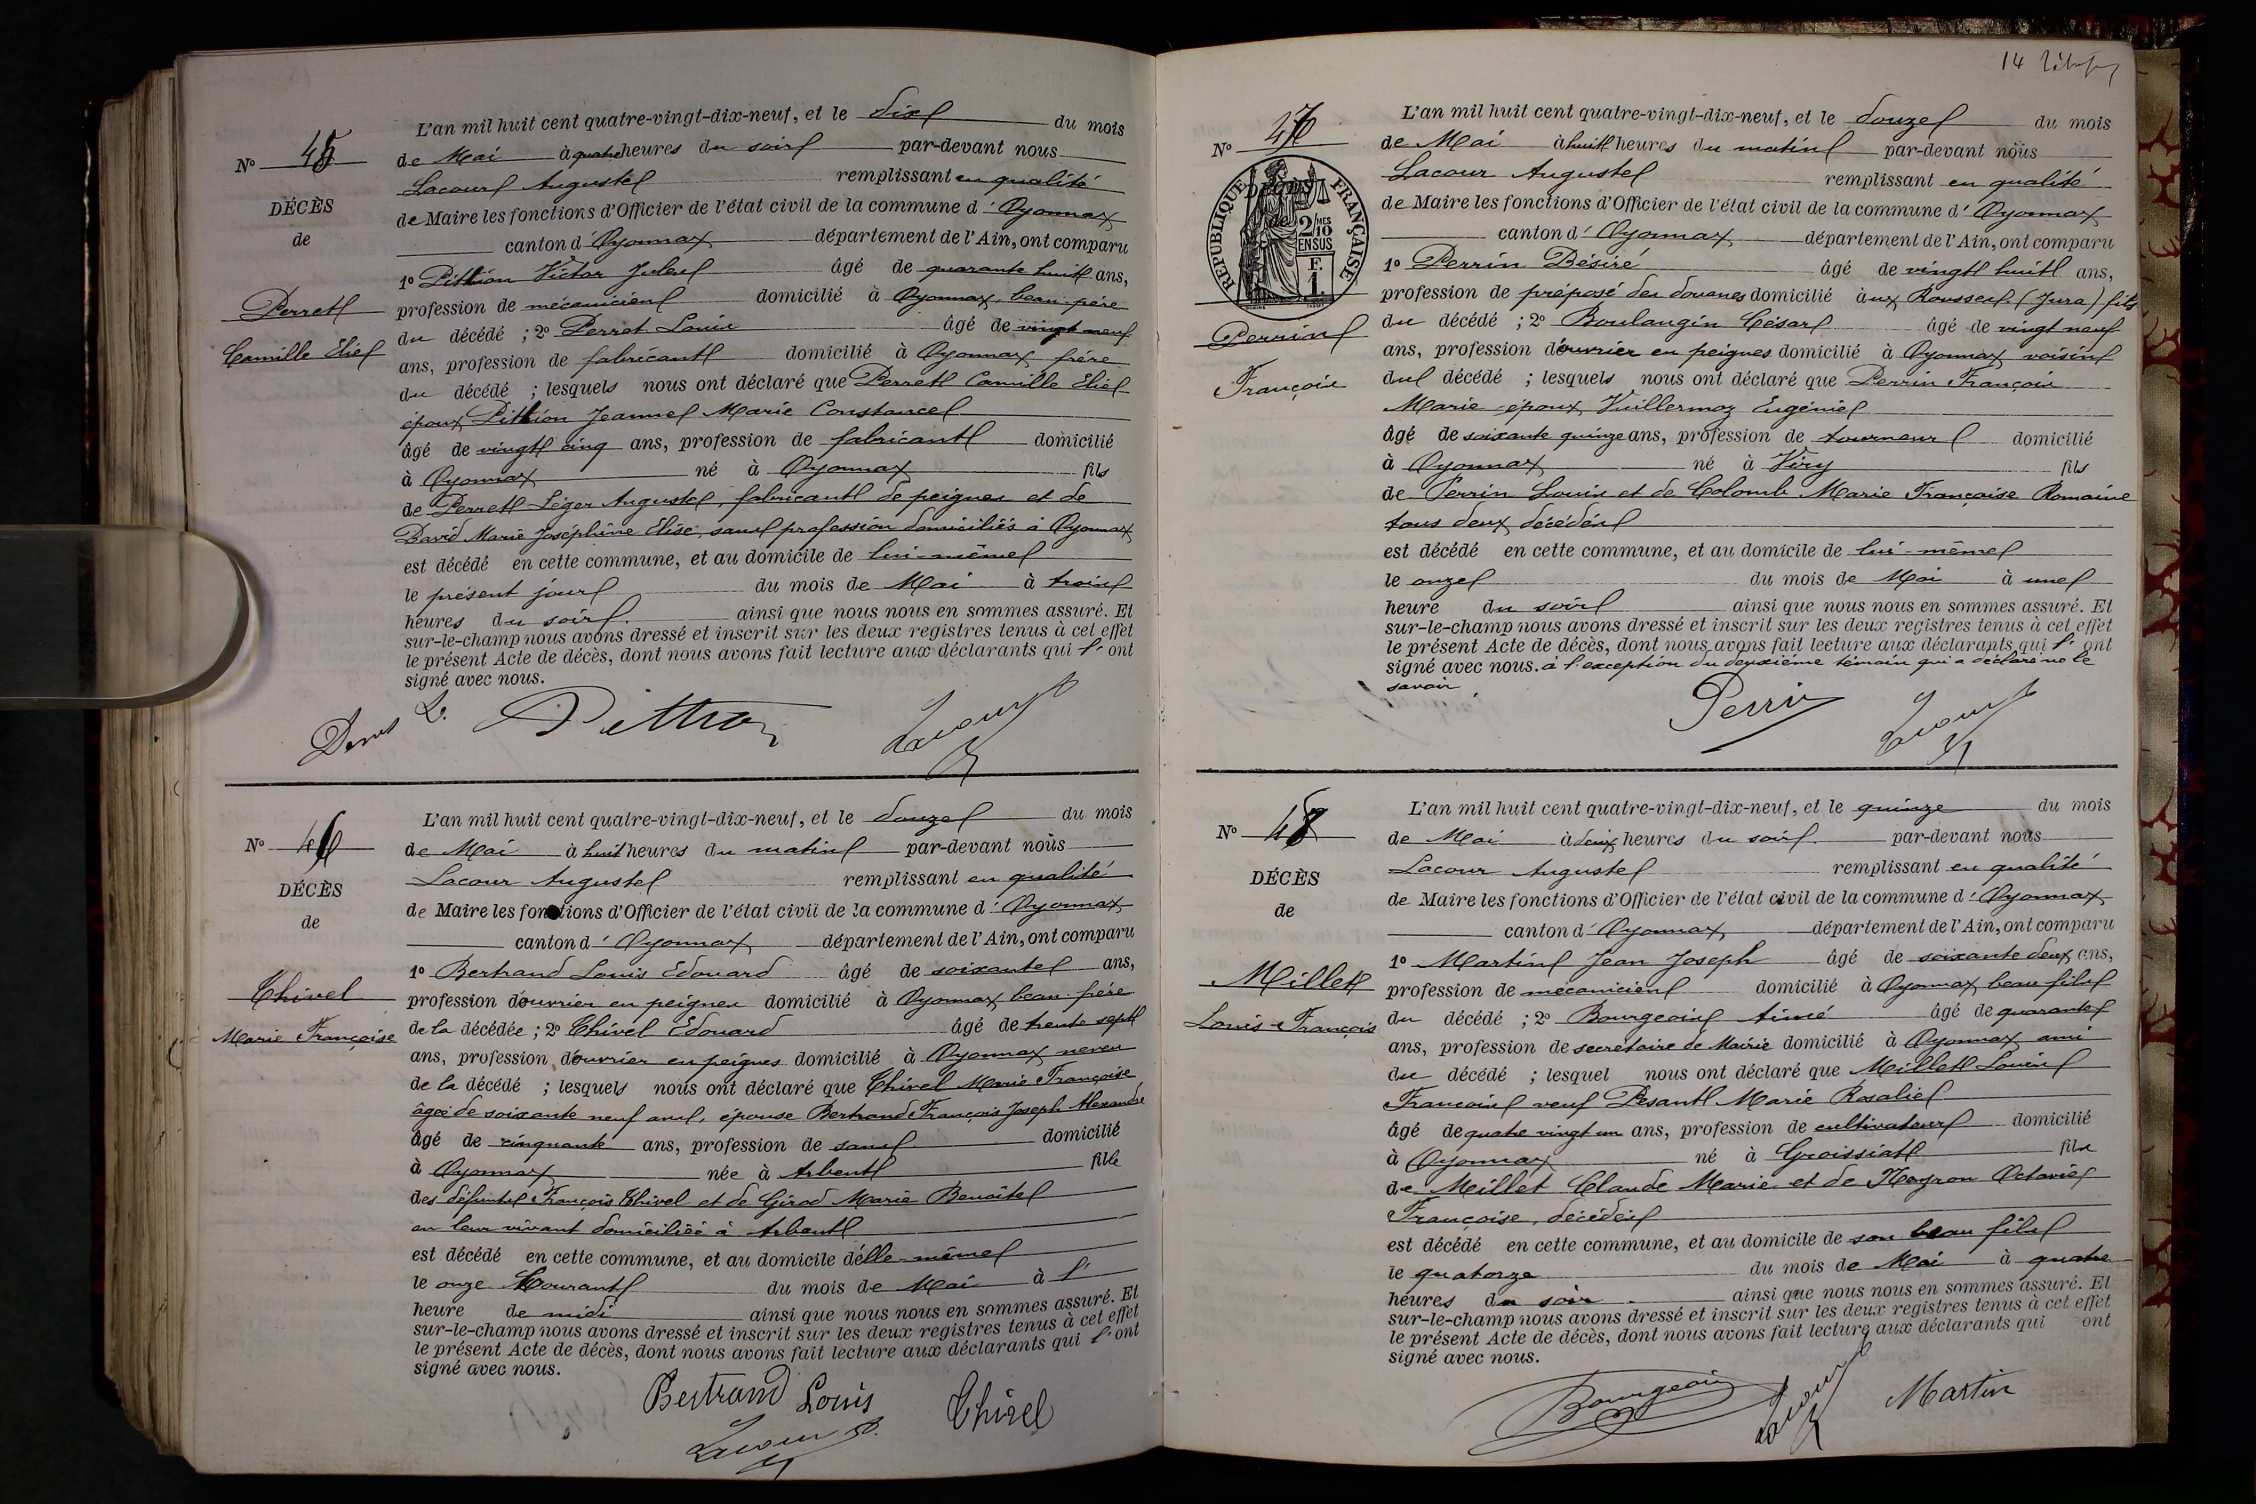 L'an mil huit cent quatre-vingt-dix-neuf, et le dix du mois
N° 45
de Mai à quatre heures du soir par-devant nous
Lacour Auguste remplissant en qualité
DÉCÈS
de Maire les fonctions d'Officier de l'état civil de la commune d'Oyonnax
de
canton d'Oyonnax département de l'Ain, ont comparu
1° Pittion Victor Jules âgé de quarante huit ans,
Perret
profession de mécanicien domicilié à Oyonnax, beau-père
du décédé ; 2° Perret Louis âgé de vingt neuf
Camille Elie
ans, profession de fabricant domicilié à Oyonnax, frère
du décédé ; lesquels nous ont déclaré que Perret Camille Elie
époux Pittion Jeanne Marie Constance
âgé de vingt cinq ans, profession de fabricant domicilié
à Oyonnax né à Oyonnax fils
de Perret Léger Auguste, fabricant de peignes et de
David Marie Joséphine Elise, sans profession domiciliés à Oyonnax
est décédé en cette commune, et au domicile de lui-même
le présent jour du mois de Mai à trois
heures du soir. ainsi que nous nous en sommes assuré. Et
sur-le-champ nous avons dressé et inscrit sur les deux registres tenus à cet effet
le présent Acte de décès, dont nous avons fait lecture aux déclarants qui l'ont
signé avec nous.
L. Pittion Lacour
L'an mil huit cent quatre-vingt-dix-neuf, et le douze du mois
N° 46
de Mai à huit heures du matin par-devant nous
Lacour Auguste remplissant en qualité
DÉCÈS
de Maire les fonctions d'Officier de l'état civil de la commune d'Oyonnax
de
canton d'Oyonnax département de l'Ain, ont comparu
1° Bertrand Louis Edouard âgé de soixante ans,
Chivel
profession d'ouvrier en peignes domicilié à Oyonnax beau-frère
de la décédée ; 2° Chivel Edouard âgé de trente sept
Marie Françoise
ans, profession d'ouvrier en peignes domicilié à Oyonnax neveu
de la décédé ; lesquels nous ont déclaré que Chivel Marie Françoise
âgée de soixante neuf ans, épouse Bertrand François Joseph Alexandre
âgé de cinquante ans, profession de sans domicilié
à Oyonnax née à Arbent fille
des défunts François Chivel et de Girod Marie Benoîte
en leur vivant domiciliés à Arbent
est décédé en cette commune, et au domicile d'elle-même
le onze courant du mois de Mai à l'
heure de midi ainsi que nous nous en sommes assuré. Et
sur-le-champ nous avons dressé et inscrit sur les deux registres tenus à cet effet
le présent Acte de décès, dont nous avons fait lecture aux déclarants qui l'ont
signé avec nous.
Bertrand Louis Chivel
Lacour
14
L'an mil huit cent quatre-vingt-dix-neuf, et le douze du mois
N° 47
de Mai à huit heures du matin par-devant nous
Lacour Auguste remplissant en qualité
RÉPUBLIQUE FRANÇAISE
2/10 EN SUS
F. 1.
de Maire les fonctions d'Officier de l'état civil de la commune d'Oyonnax
canton d'Oyonnax département de l'Ain, ont comparu
1° Perrin Désiré âgé de vingt huit ans,
profession de préposé des douanes domicilié aux Rousses (Jura) fils
Perrin
du décédé ; 2° Boulangin César âgé de vingt neuf
ans, profession d'ouvrier en peignes domicilié à Oyonnax voisin
François
du décédé ; lesquels nous ont déclaré que Perrin François
Marie époux Vuillermoz Eugénie
âgé de soixante quinze ans, profession de tourneur domicilié
à Oyonnax né à Viry fils
de Perrin Louis et de Colomb Marie Françoise Romaine
tous deux décédés
est décédé en cette commune, et au domicile de lui-même
le onze du mois de Mai à une
heure du soir ainsi que nous nous en sommes assuré. Et
sur-le-champ nous avons dressé et inscrit sur les deux registres tenus à cet effet
le présent Acte de décès, dont nous avons fait lecture aux déclarants qui l'ont
signé avec nous. à l'exception du deuxième témoin qui a déclaré ne le
savoir
Perrin Lacour
L'an mil huit cent quatre-vingt-dix-neuf, et le quinze du mois
N° 48
de Mai à deux heures du soir. par-devant nous
Lacour Auguste remplissant en qualité
DÉCÈS
de Maire les fonctions d'Officier de l'état civil de la commune d'Oyonnax
de
canton d'Oyonnax, département de l'Ain, ont comparu
1° Martin Jean Joseph âgé de soixante deux ans,
Millet
profession de mécanicien domicilié à Oyonnax beau fils
Louis François
du décédé ; 2° Bourgeois Aimé âgé de quarante
ans, profession de secrétaire de Mairie domicilié à Oyonnax ami
du décédé ; lesquel nous ont déclaré que Millet Louis
François veuf Pesant Marie Rosalie
âgé de quatre vingt un ans, profession de cultivateur domicilié
à Oyonnax né à Groissiat fils
de Millet Claude Marie et de Neyron Octavie
Françoise, décédés
est décédé en cette commune, et au domicile de son beau fils
le quatorze du mois de Mai à quatre
heures du soir ainsi que nous nous en sommes assuré. Et
sur-le-champ nous avons dressé et inscrit sur les deux registres tenus à cet effet
le présent Acte de décès, dont nous avons fait lecture aux déclarants qui ont
signé avec nous.
Bourgeois Lacour Martin